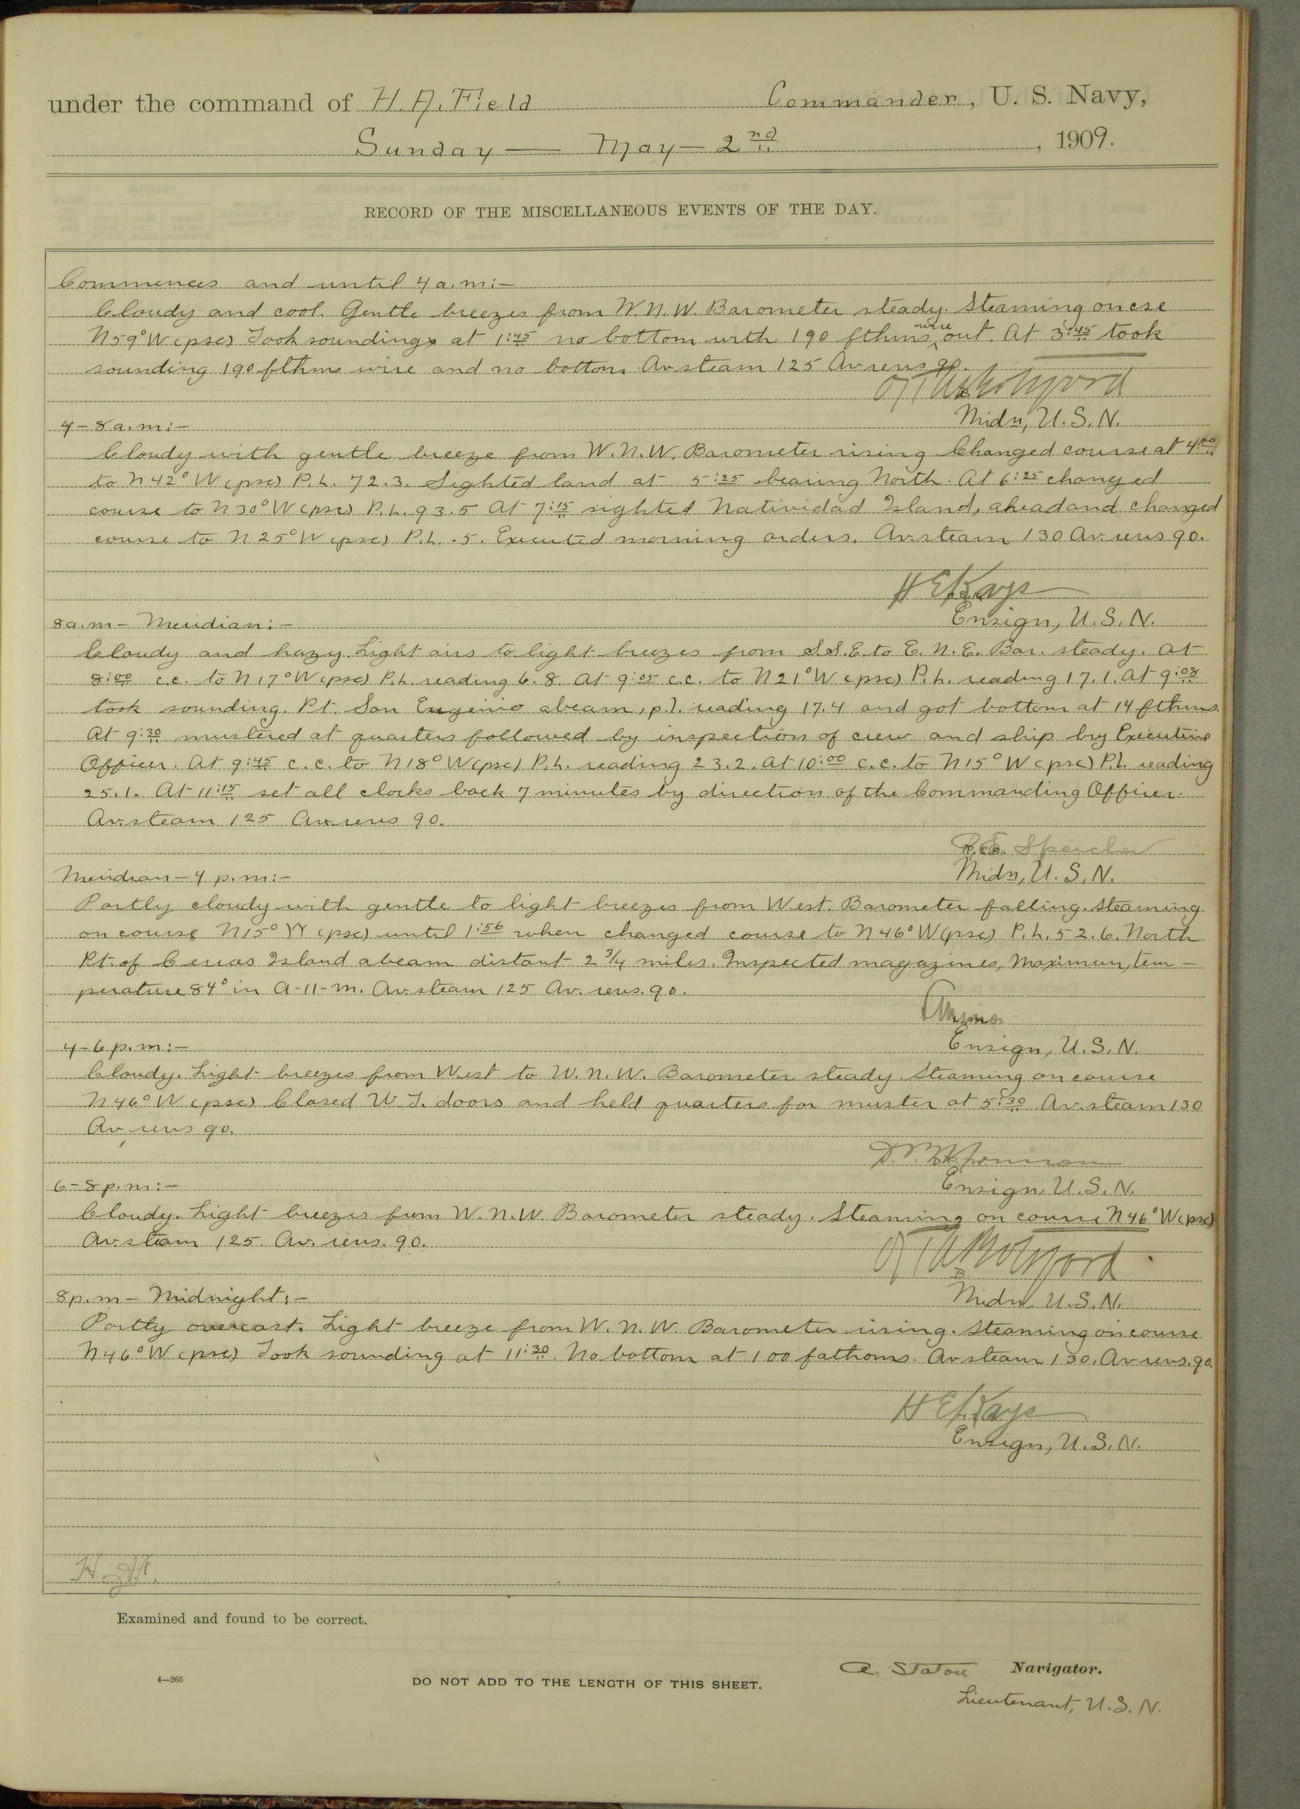 under the command of H. A. Field Commander, U. S. Navy,
Sunday — May — 2nd, 1909.
RECORD OF THE MISCELLANEOUS EVENTS OF THE DAY.
Commences and until 4 a.m:-
Cloudy and cool. Gentle breezes from W.N.W. Barometer steady. Steaming on cse
N59°W (psc) Took soundings at 1:45 no bottom with 190 fthms wire out. At 3:45 took
sounding 190 fthms wire and no bottom Av steam 125 Av revs 90.
Midn, U.S.N.
4-8 a.m:-
Cloudy with gentle breeze from W.N.W. Barometer rising Changed course at 4:00
to N 42° W (psc) P.L. 72.3. Sighted land at 5:25 bearing North. At 6:25 changed
course to N 30° W (psc) P.L. 93.5 At 7:15 sighted Natividad Island, ahead and changed
course to N 25° W (psc) P.L. .5. Executed morning orders. Av. steam 130 Av. revs 90.
H E Kays
Ensign, U.S.N.
8 a.m - Meridian:-
Cloudy and hazy. Light airs to light breezes from S.S.E. to E.N.E. Bar. steady. At
8:00 c.c. to N 17° W (psc) P.L. reading 6.8. At 9:05 c.c. to N 21° W (psc) P.L. reading 17.1. At 9:08
took sounding. Pt. San Eugenio abeam, p.l. reading 17.4 and got bottom at 14 fthms.
At 9:30 mustered at quarters followed by inspection of crew and ship by Executive
Officer. At 9:45 c.c. to N 18° W (psc) P.L. reading 23.2. At 10:00 c.c. to N 15° W (psc) P.L. reading
25.1. At 11:15 set all clocks back 7 minutes by direction of the Commanding Officer.
Av. steam 125 Av. revs 90.
Midn, U.S.N.
Meridian - 4 p.m:-
Partly cloudy with gentle to light breezes from West. Barometer falling. Steaming
on course N 15° W (psc) until 1:56 when changed course to N 46° W (psc) P.L. 52.6. North
Pt. of Cerros Island abeam distant 2 3/4 miles. Inspected magazines, Maximum, tem-
perature 84° in A-11-M. Av. steam 125 Av. revs. 90.
Ensign, U.S.N.
4-6 p.m:-
Cloudy. Light breezes from West to W.N.W. Barometer steady. Steaming on course
N 46° W (psc) Closed W.T. doors and held quarters for muster at 5:30 Av. steam 130
Av. revs 90.
Ensign, U.S.N.
6-8 p.m:-
Cloudy. Light breezes from W.N.W. Barometer steady. Steaming on course N 46° W (psc)
Av. steam 125. Av. revs. 90.
Midn. U.S.N.
8 p.m - Midnight:-
Partly overcast. Light breeze from W.N.W. Barometer rising. Steaming on course
N 46° W (psc) Took sounding at 11:30. No bottom at 100 fathoms. Av steam 130. Av revs. 90.
H E Kays
Ensign, U.S.N.
Examined and found to be correct.
A. Staton Navigator.
4—265 DO NOT ADD TO THE LENGTH OF THIS SHEET.
Lieutenant, U.S.N.